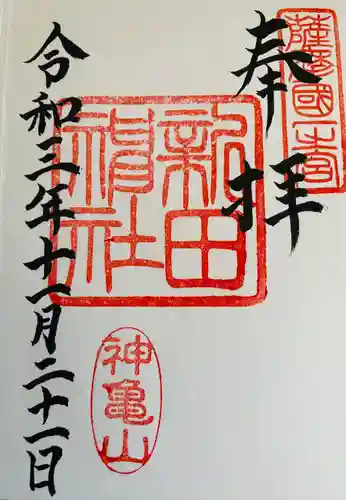 薩摩國一之宮
奉拝
新田神社
神亀山
令和三年十一月二十一日